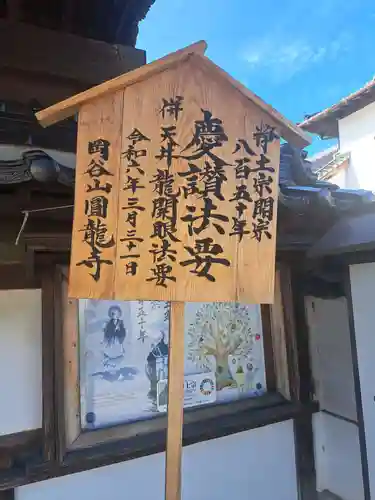 浄土宗開宗
八百五十年
慶讃法要
併 天井龍開眼法要
令和六年三月三十一日
岡谷山圓龍寺